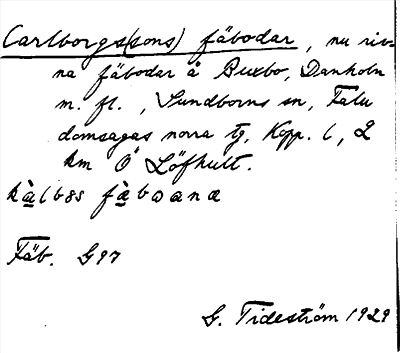 Carlborgs(sons) fäbodar, nu riv-
na fäbodar å Buxbo, Danholn
m. fl., Sundborns sn, Falu
domsagas norra tg, Kopp. l, 2
km Ö Löfhult.
kàlb8s fæ̀boana
Fäb. G97
G. Tideström 1929